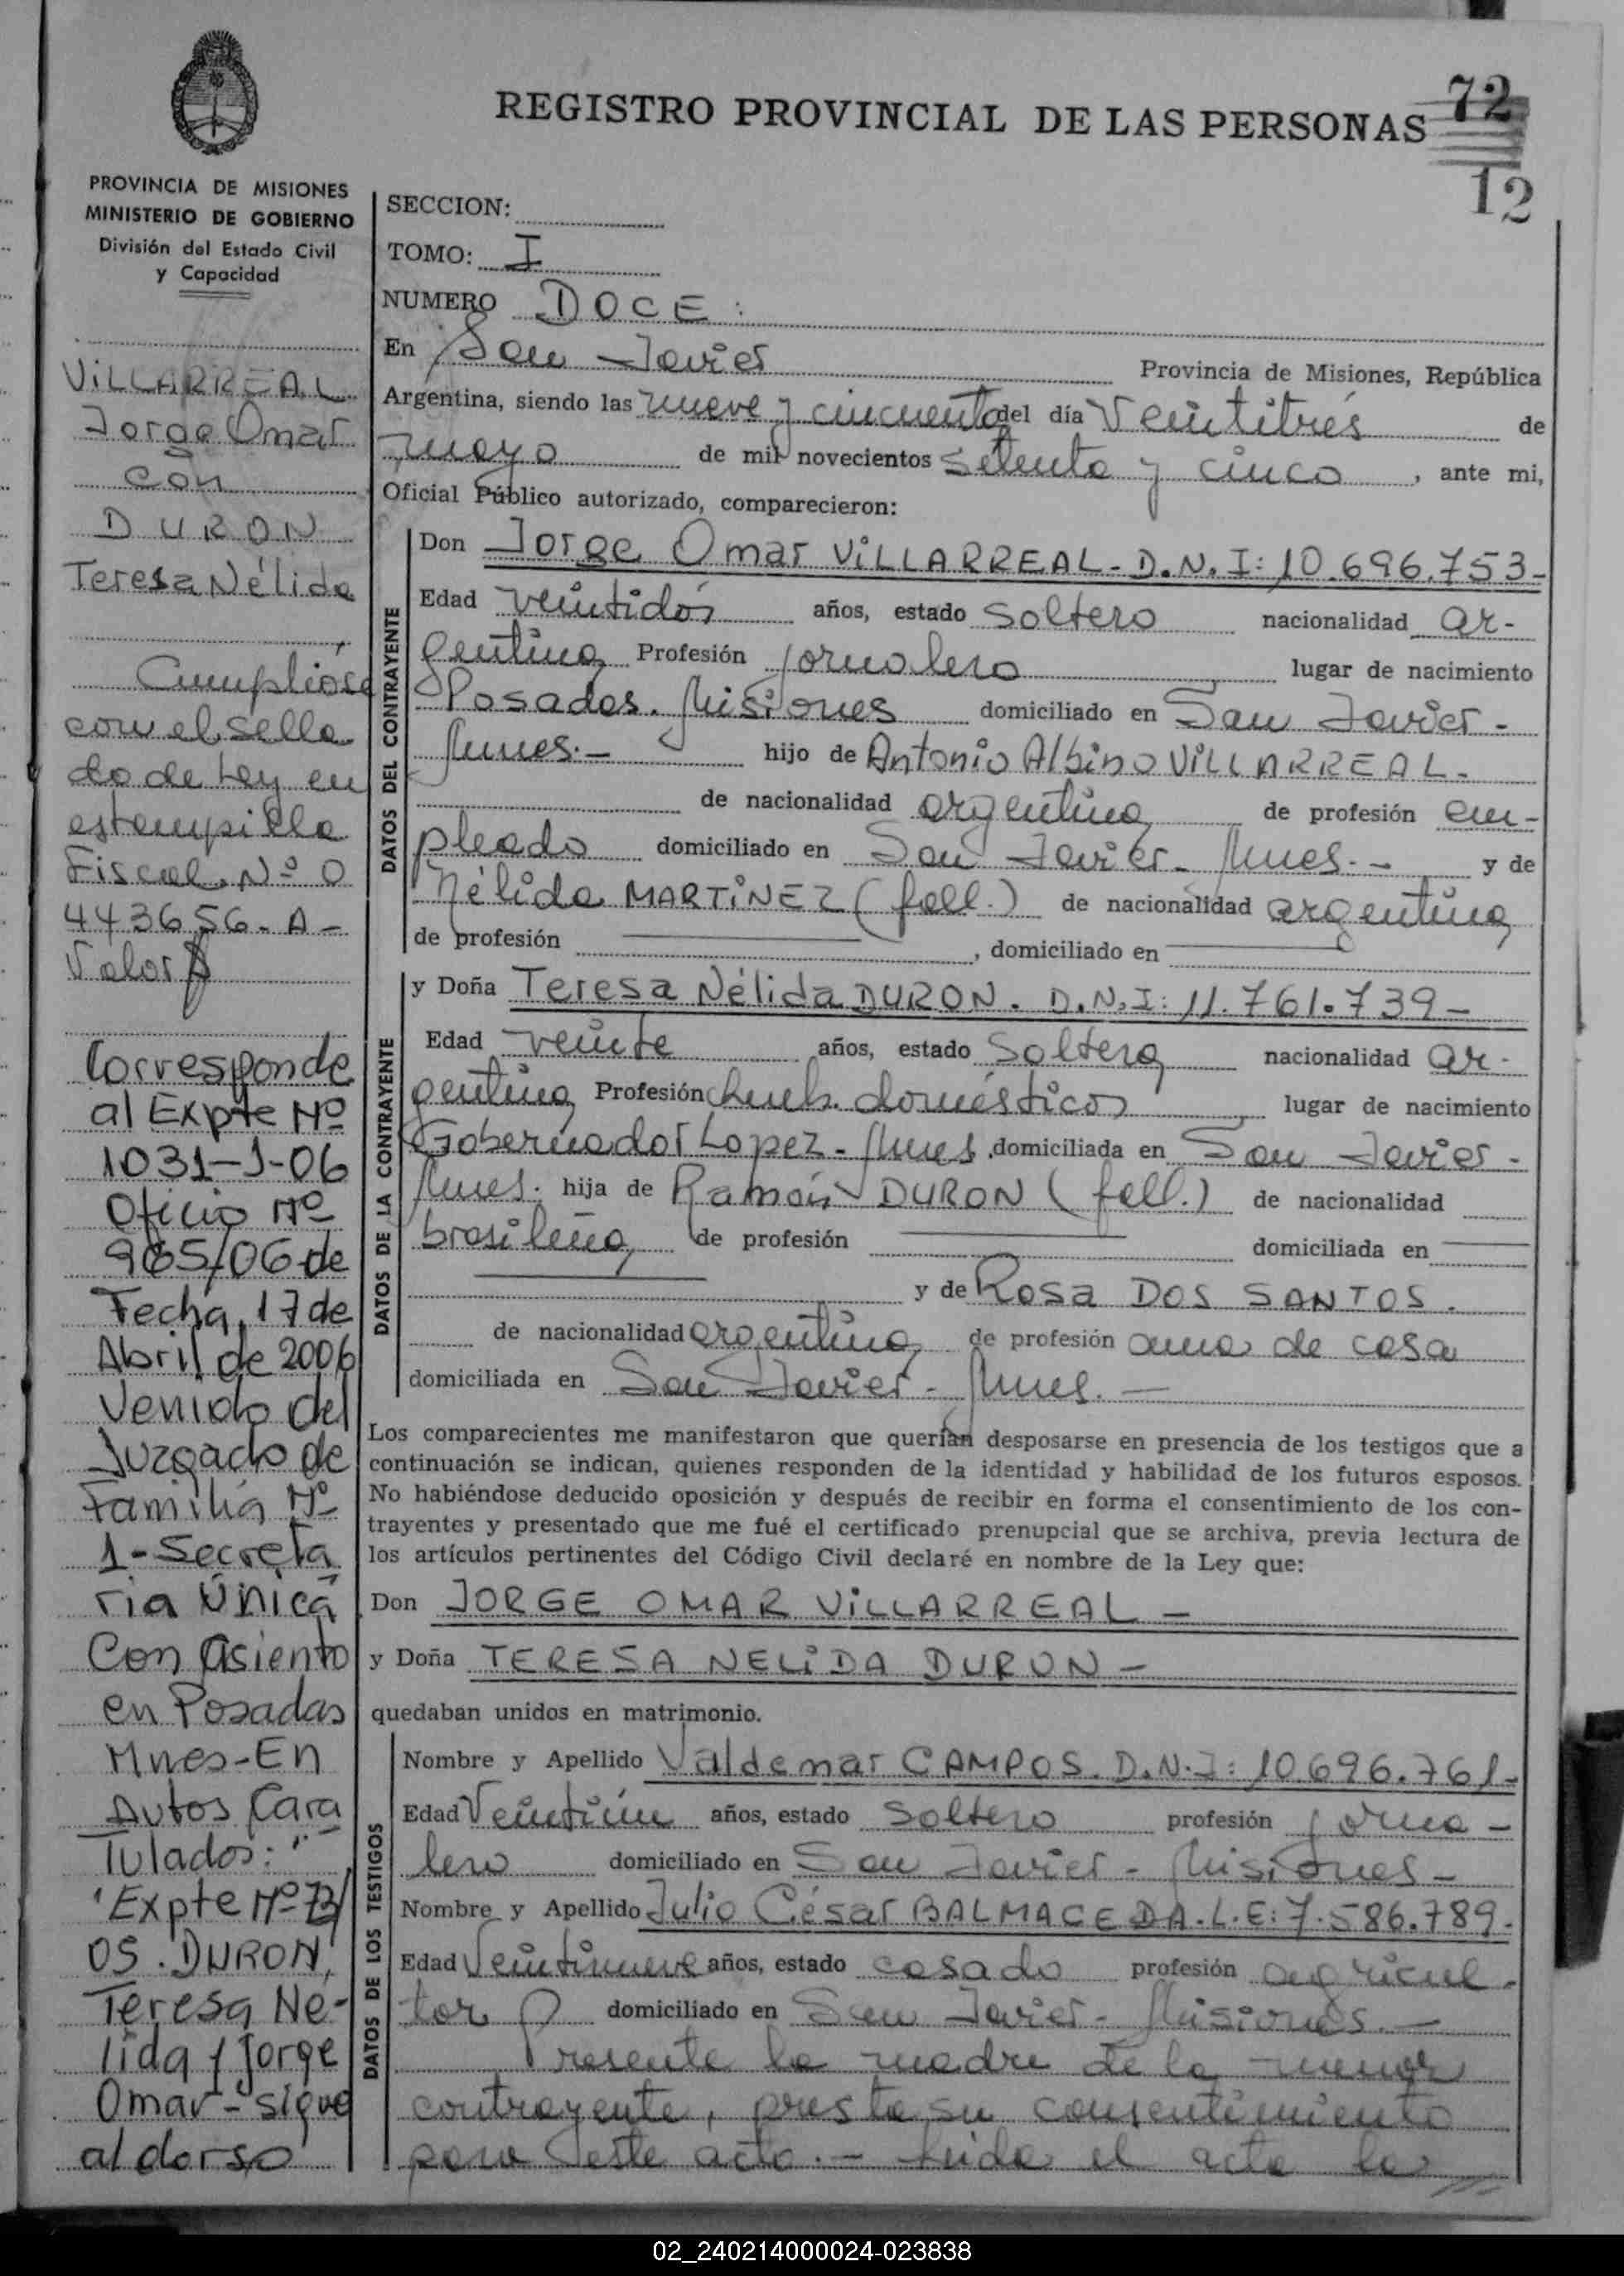 REGISTRO PROVINCIAL DE LAS PERSONAS
72
12
PROVINCIA DE MISIONES
MINISTERIO DE GOBIERNO
División del Estado Civil
y Capacidad
VILLARREAL
Jorge Omar
con
DURON
Teresa Nélida
Cumplióse
con el sella
do de Ley en
estampilla
Fiscal Nº 0
443656-A-
Valor $
Corresponde
al Expte Nº
1031-J-06
Oficio Nº
965/06 de
Fecha, 17 de
Abril de 2006
Venido del
Juzgado de
Familia Nº
1-Secreta
ria Única
Con asiento
en Posadas
Mnes-En
Autos Cara
Tulados: "
'Expte Nº 73/
05. DURON,
Teresa Ne-
lida y Jorge
Omar-sigue
al dorso
SECCION:
TOMO: I
NUMERO DOCE:
En San Javier Provincia de Misiones, República
Argentina, siendo las nueve y cincuenta del día Veintitrés de
mayo de mil novecientos setenta y cinco, ante mi,
Oficial Público autorizado, comparecieron:
DATOS DEL CONTRAYENTE
Don Jorge Omar VILLARREAL- D.N.I: 10.696.753-
Edad veintidós años, estado soltero nacionalidad ar-
gentina Profesión jornalero lugar de nacimiento
Posadas. Misiones domiciliado en San Javier-
Mnes.- hijo de Antonio Albino VILLARREAL-
de nacionalidad argentina de profesión em-
pleado domiciliado en San Javier- Mnes.- y de
Nélida MARTINEZ (fall.) de nacionalidad argentina
de profesión , domiciliado en
DATOS DE LA CONTRAYENTE
y Doña Teresa Nélida DURON. D.N.I: 11.761.739-
Edad veinte años, estado Soltera nacionalidad ar-
gentina Profesión domésticos lugar de nacimiento
Gobernador Lopez- Mnes. domiciliada en San Javier-
Mnes. hija de Ramón DURON (fall.) de nacionalidad
brasileña, de profesión domiciliada en
y de Rosa DOS SANTOS.
de nacionalidad argentina de profesión ama de casa
domiciliada en San Javier- Mnes.-
Los comparecientes me manifestaron que querían desposarse en presencia de los testigos que a
continuación se indican, quienes responden de la identidad y habilidad de los futuros esposos.
No habiéndose deducido oposición y después de recibir en forma el consentimiento de los con-
trayentes y presentado que me fué el certificado prenupcial que se archiva, previa lectura de
los artículos pertinentes del Código Civil declaré en nombre de la Ley que:
Don JORGE OMAR VILLARREAL-
y Doña TERESA NELIDA DURON-
quedaban unidos en matrimonio.
DATOS DE LOS TESTIGOS
Nombre y Apellido Valdemar CAMPOS. D.N.I: 10.696.761-
Edad Veintiún años, estado soltero profesión jorna-
lero domiciliado en San Javier- Misiones-
Nombre y Apellido Julio César BALMACEDA. L.E: 7.586.789.
Edad Veintinueve años, estado casado profesión agricul-
tor domiciliado en San Javier- Misiones.-
Presente la madre de la menor
contrayente, presta su consentimiento
para este acto.- Leída el acta la
02_240214000024-023838